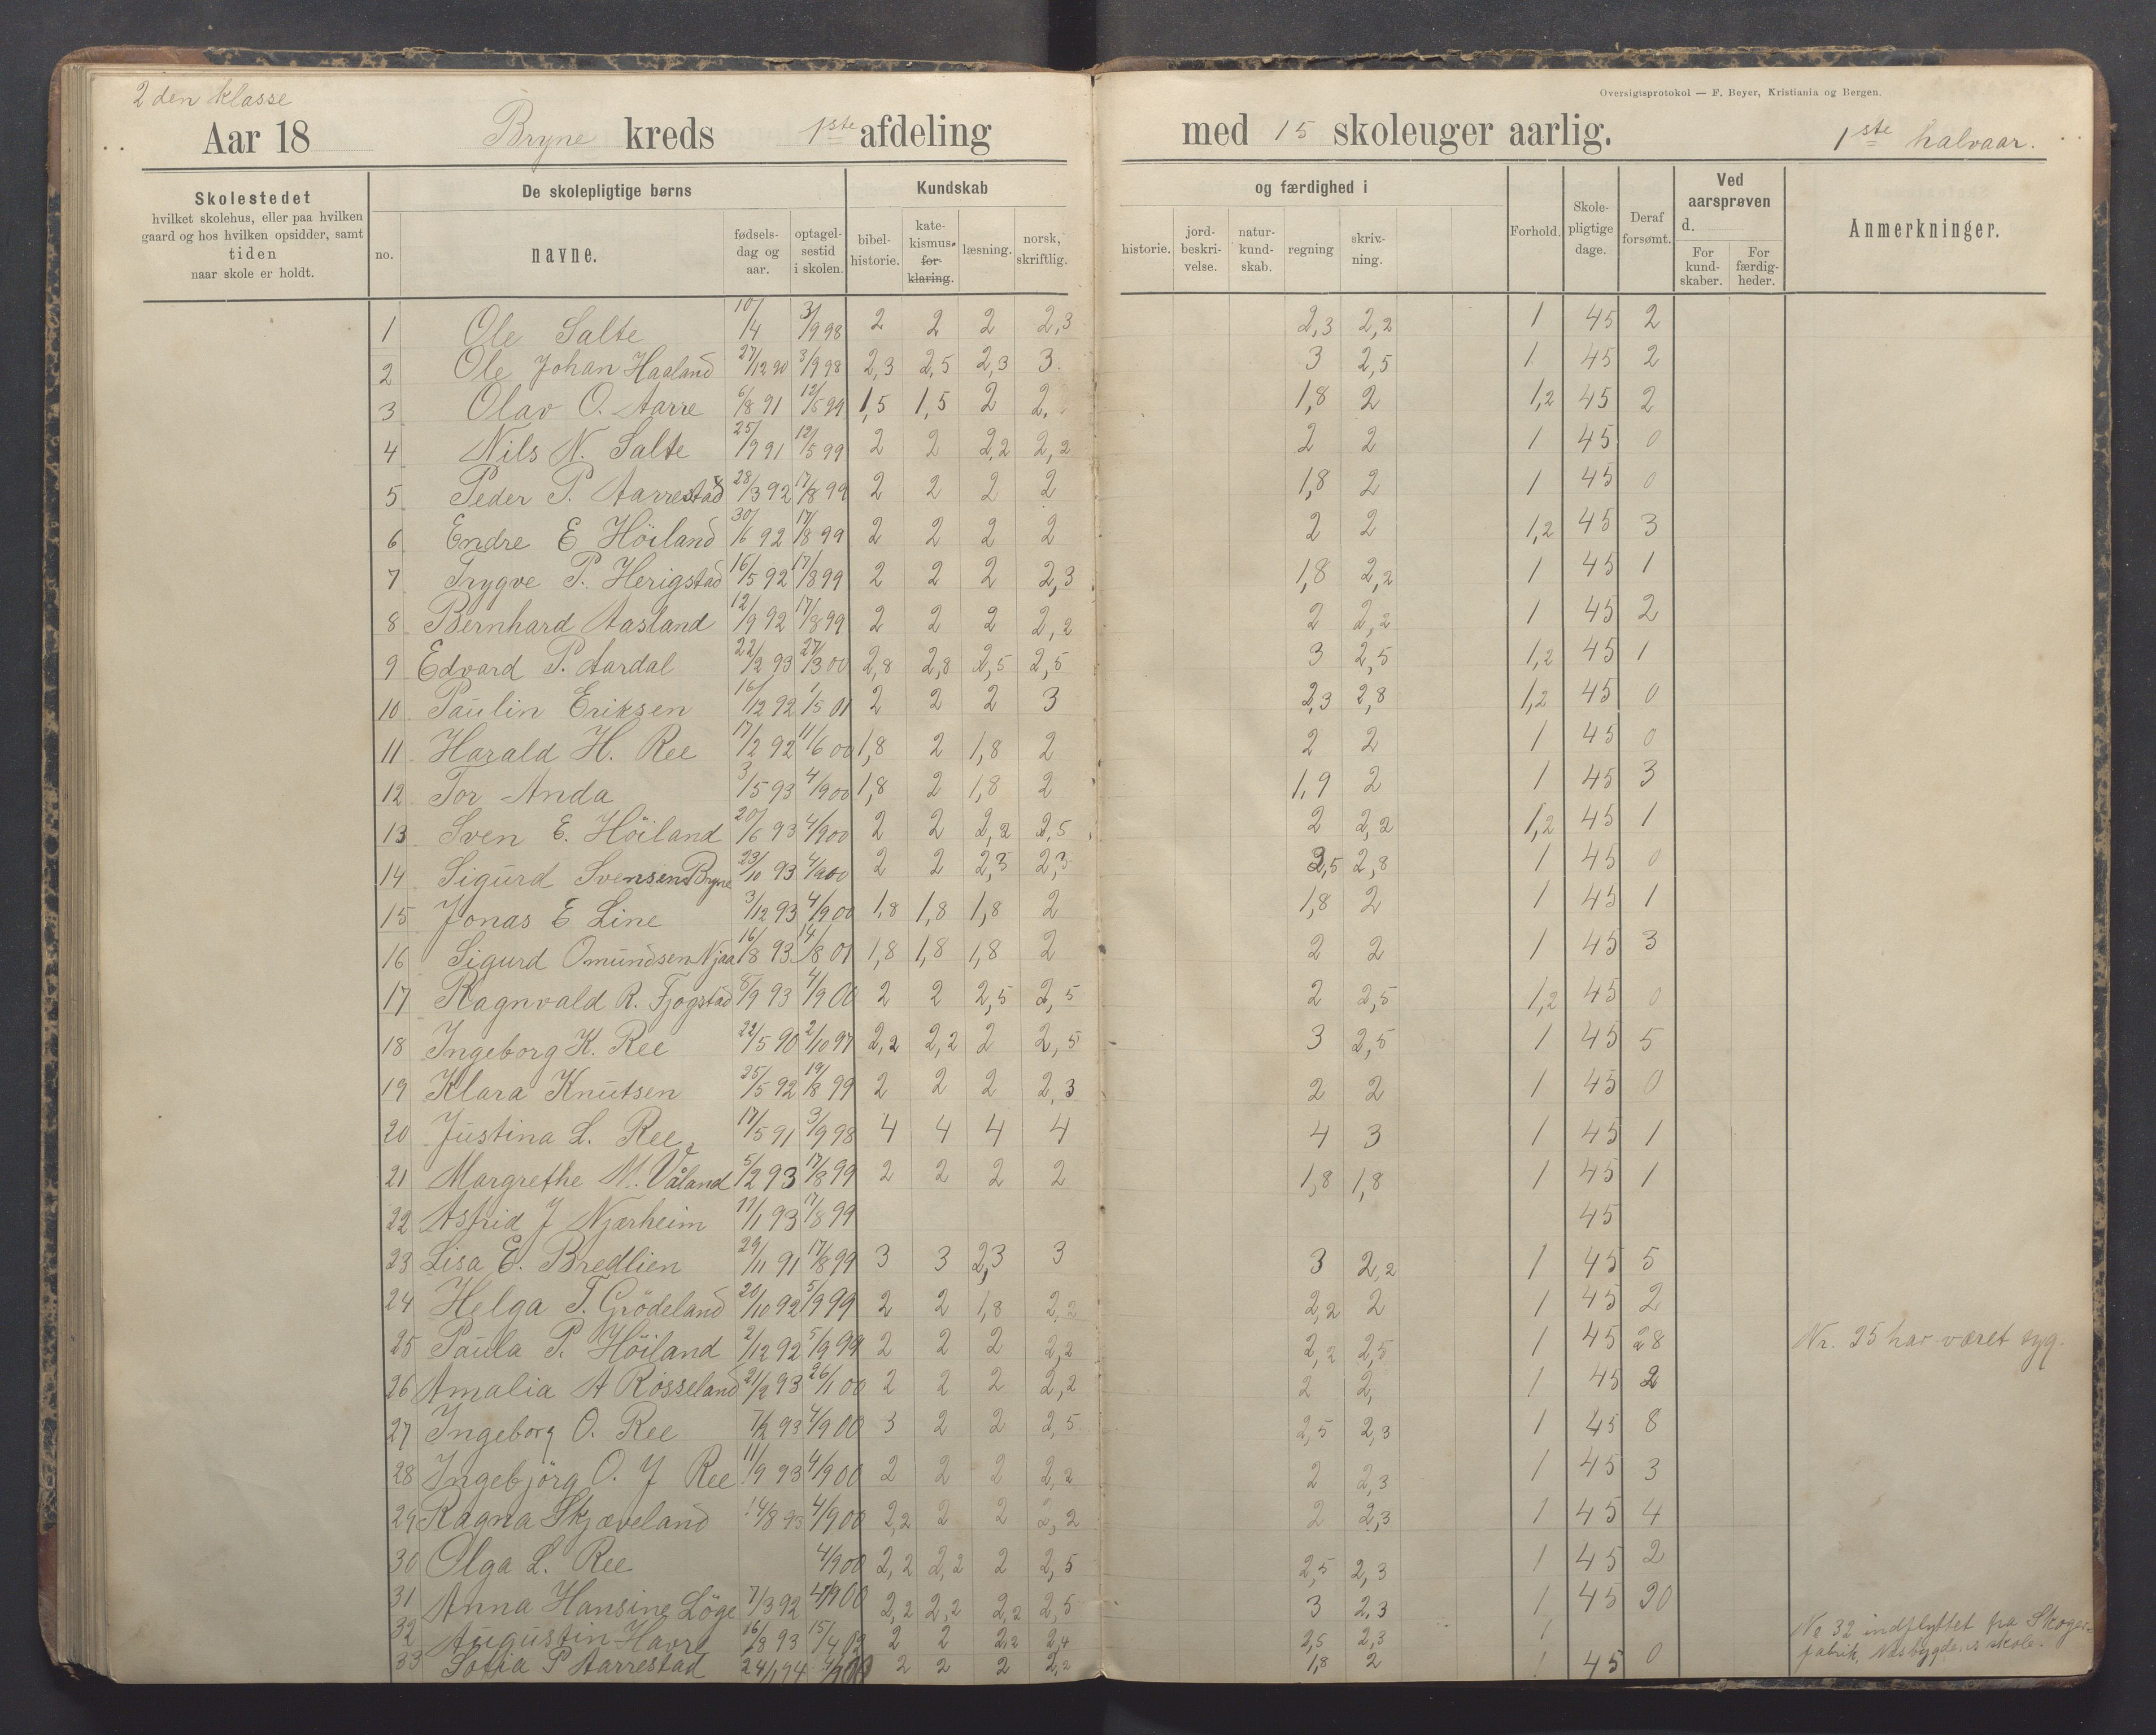 2 den klasse
Oversigtsprotokol — F. Beyer, Kristiania og Bergen.
Aar 18 Bryne kreds 1ste afdeling med 15 skoleuger aarlig. 1ste halvaar.
Skolestedet
hvilket skolehus, eller paa hvilken
gaard og hos hvilken opsidder, samt
tiden
naar skole er holdt.
De skolepligtige børns
no. navne. fødsels-dag og aar. optagel-sestid i skolen.
Kundskab og færdighed i
bibel-historie. kate-kismus. for-klaring. læsning. norsk, skriftlig. historie. jord-beskri-velse. natur-kund-skab. regning skriv-ning.
Forhold. Skole-pligtige dage. Deraf forsømt.
Ved aarsprøven d.
For kund-skaber. For færdig-heder.
Anmerkninger.
1 Ole Salte 10/4 3/9 98 2 2 2 2,3 2,3 2,2 1 45 2
2 Ole Johan Haaland 27/12 90 3/9 98 2,3 2,5 2,3 3 3 2,5 1 45 2
3 Olav O. Aarre 6/8 91 12/5 99 1,5 1,5 2 2, 1,8 2 1,2 45 2
4 Nils N. Salte 25/9 91 12/5 99 2 2 2,2 2,2 2 2 1 45 0
5 Peder P. Aarrestad 28/3 92 17/8 99 2 2 2 2 1,8 2 1 45 0
6 Endre E Höiland 30/6 92 17/8 99 2 2 2 2 2 2 1,2 45 3
7 Trygve P. Herigstad 16/5 92 17/8 99 2 2 2 2,3 1,8 2,2 1 45 1
8 Bernhard Aasland 12/9 92 17/8 99 2 2 2 2,2 2 2,2 1 45 2
9 Edvard P. Aardal 22/2 93 27/3 00 2,8 2,8 2,5 2,5 3 2,5 1,2 45 1
10 Paulin Eriksen 16/12 92 1/5 01 2 2 2 3 2,3 2,8 1,2 45 0
11 Harald H. Ree 17/2 92 11/6 00 1,8 2 1,8 2 2 2 1 45 0
12 Tor Anda 3/5 93 4/9 00 1,8 2 1,8 2 1,9 2 1 45 3
13 Sven E. Höiland 20/6 93 4/9 00 2 2 2,2 2,5 2 2,2 1,2 45 1
14 Sigurd Svensen Bryne 23/10 93 4/9 00 2 2 2,3 2,3 2,5 2,8 1 45 0
15 Jonas E Line 3/12 93 4/9 00 1,8 1,8 1,8 2 1,8 2 1 45 1
16 Sigurd Omundsen Njaa 16/8 93 14/8 01 1,8 1,8 1,8 2 2 2 1 45 3
17 Ragnvald R. Tjogstad 8/9 93 4/9 00 2 2 2,5 2,5 2 2,5 1,2 45 0
18 Ingeborg K. Ree 22/5 90 2/10 97 2,2 2,2 2 2,5 3 2,5 1 45 5
19 Klara Knutsen 25/5 92 19/8 99 2 2 2 2,3 2 2 1 45 0
20 Justina L. Ree 17/5 91 3/9 98 4 4 4 4 4 3 1 45 1
21 Margrethe M. Våland 5/2 93 17/8 99 2 2 2 2 1,8 1,8 1 45 1
22 Astrid J Njærheim 11/1 93 17/8 99 45
23 Lisa E. Bredlien 29/11 91 17/8 99 3 3 2,3 3 3 2,2 1 45 5
24 Helga T. Grödeland 20/10 92 5/9 99 2 2 1,8 2,2 2,2 2 1 45 2
25 Paula P. Höiland 2/12 92 5/9 99 2 2 2 2,2 2,2 2,5 1 45 28 Nr. 25 har været syg.
26 Amalia A Rosseland 21/2 93 26/1 00 2 2 2 2,2 2 2, 1 45 2
27 Ingeborg O. Ree 7/2 93 4/9 00 3 2 2 2,5 2,5 2,3 1 45 8
28 Ingebjörg O. J Ree 11/9 93 4/9 00 2 2 2 2,2 2 2,3 1 45 3
29 Ragna Skjæveland 14/8 93 4/9 00 2,2 2 2 2,2 2 2,3 1 45 4
30 Olga L. Ree 4/9 00 2,2 2,2 2 2,5 2,5 2,3 1 45 2
31 Anna Hansine Löge 7/3 92 4/9 00 2,2 2,2 2,2 2,5 3 2,3 1 45 20
32 Augustin Havre 16/8 93 15/4 02 2 2 2,2 2,4 2,5 2,3 1 No 32 indflyttet fra
33 Sofia P Aarrestad 24/1 94 4/9 00 2 2 2 2,2 1,8 2 1 45 0 fabrik, skole.